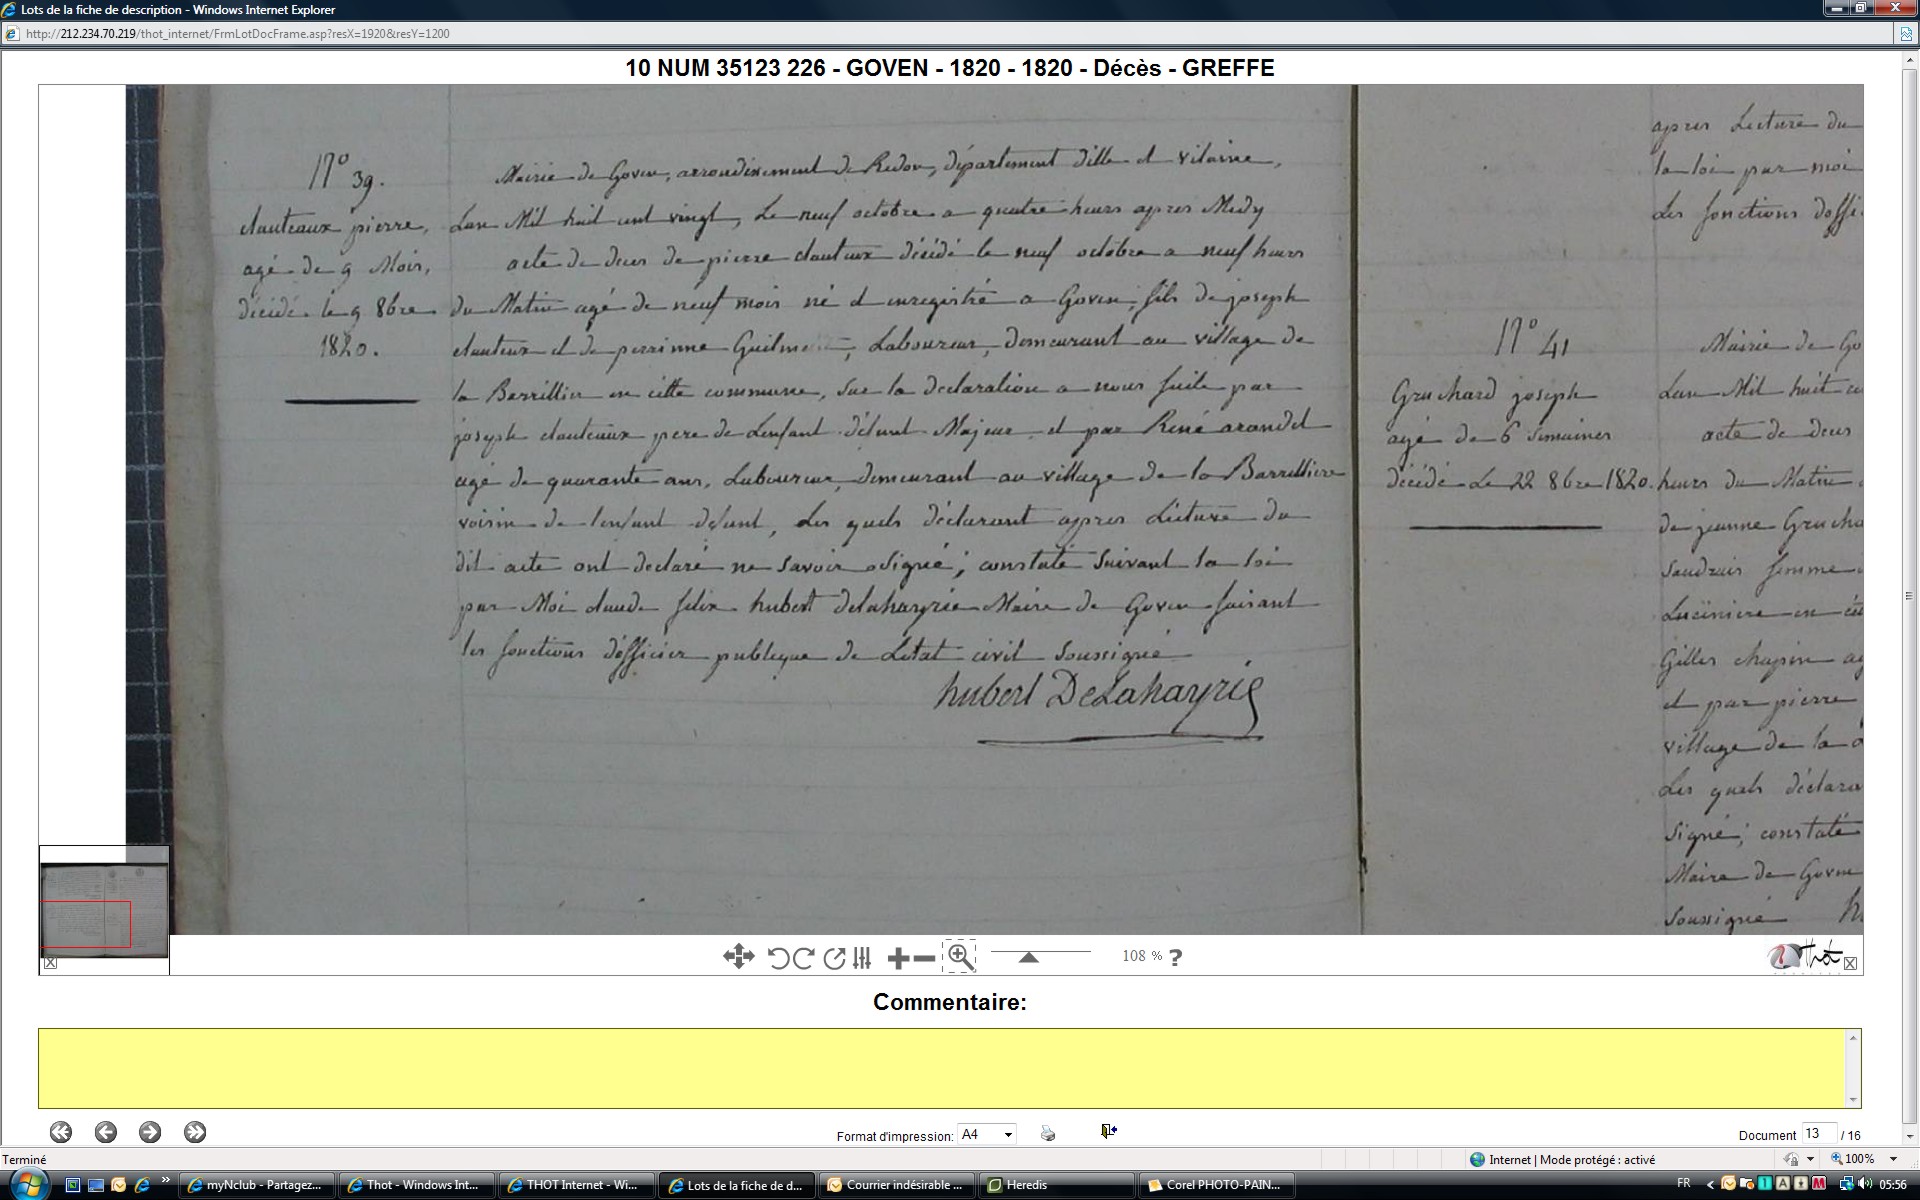 Lots de la fiche de description - Windows Internet Explorer
http://212.234.70.219/thot_internet/FrmLotDocFrame.asp?resX=1920&resY=1200
10 NUM 35123 226 - GOVEN - 1820 - 1820 - Décès - GREFFE
N° 39.
dauteaux pierre,
agé de 9 Mois,
décédé le 9 8bre
1820.
Mairie de Goven, arrondissement de Redon, département dille et vilaine,
Lan Mil huit cent vingt, Le neuf octobre a quatre heurs apres Midy
acte de deces de pierre dauteux décédé le neuf octobre a neuf heurs
du Matin agé de neuf mois né et enregistré a Goven, fils de joseph
dauteux et de perrinne Laboureur, demeurant au village de
la Barrillier en cette commune, sur la declaration a nous faite par
joseph dauteaux pere de Lenfant défunt Majeur et par René arondel
agé de quarante ans, Laboureur, demeurant au village de la Barrilliere
voisin de lenfant defunt, Les quels déclarant apres Lecture du
dit acte ont declaré ne savoir signé; constaté suivant la loi
par Moi claude felix hubert delahayrie Maire de Goven faisant
les fonctions dofficier publique de Letat civil soussigné
hubert DeLahayrie
apres Lecture du
la loi par moi
Les fonctions doffi
N° 41
Gruchard joseph
agé de 6 semaines
décédé Le 22 8bre 1820.
Mairie de Go
Lan Mil huit ce
acte de deces
heurs du Matin
de jeanne Grucha
saudrais femme
Lucinière en
Gilles chapin ag
et par pierre
village de la
Les quels déclara
signé; constaté
Maire de Goven
soussigné h
108 % ?
Thot
Commentaire:
Format d'impression: A4
Document 13 / 16
Terminé
Internet | Mode protégé : activé
100%
myNclub - Partagez...
Thot - Windows Int...
THOT Internet - Wi...
Lots de la fiche de d...
Courrier indésirable ...
Heredis
Corel PHOTO-PAIN...
FR
05:56